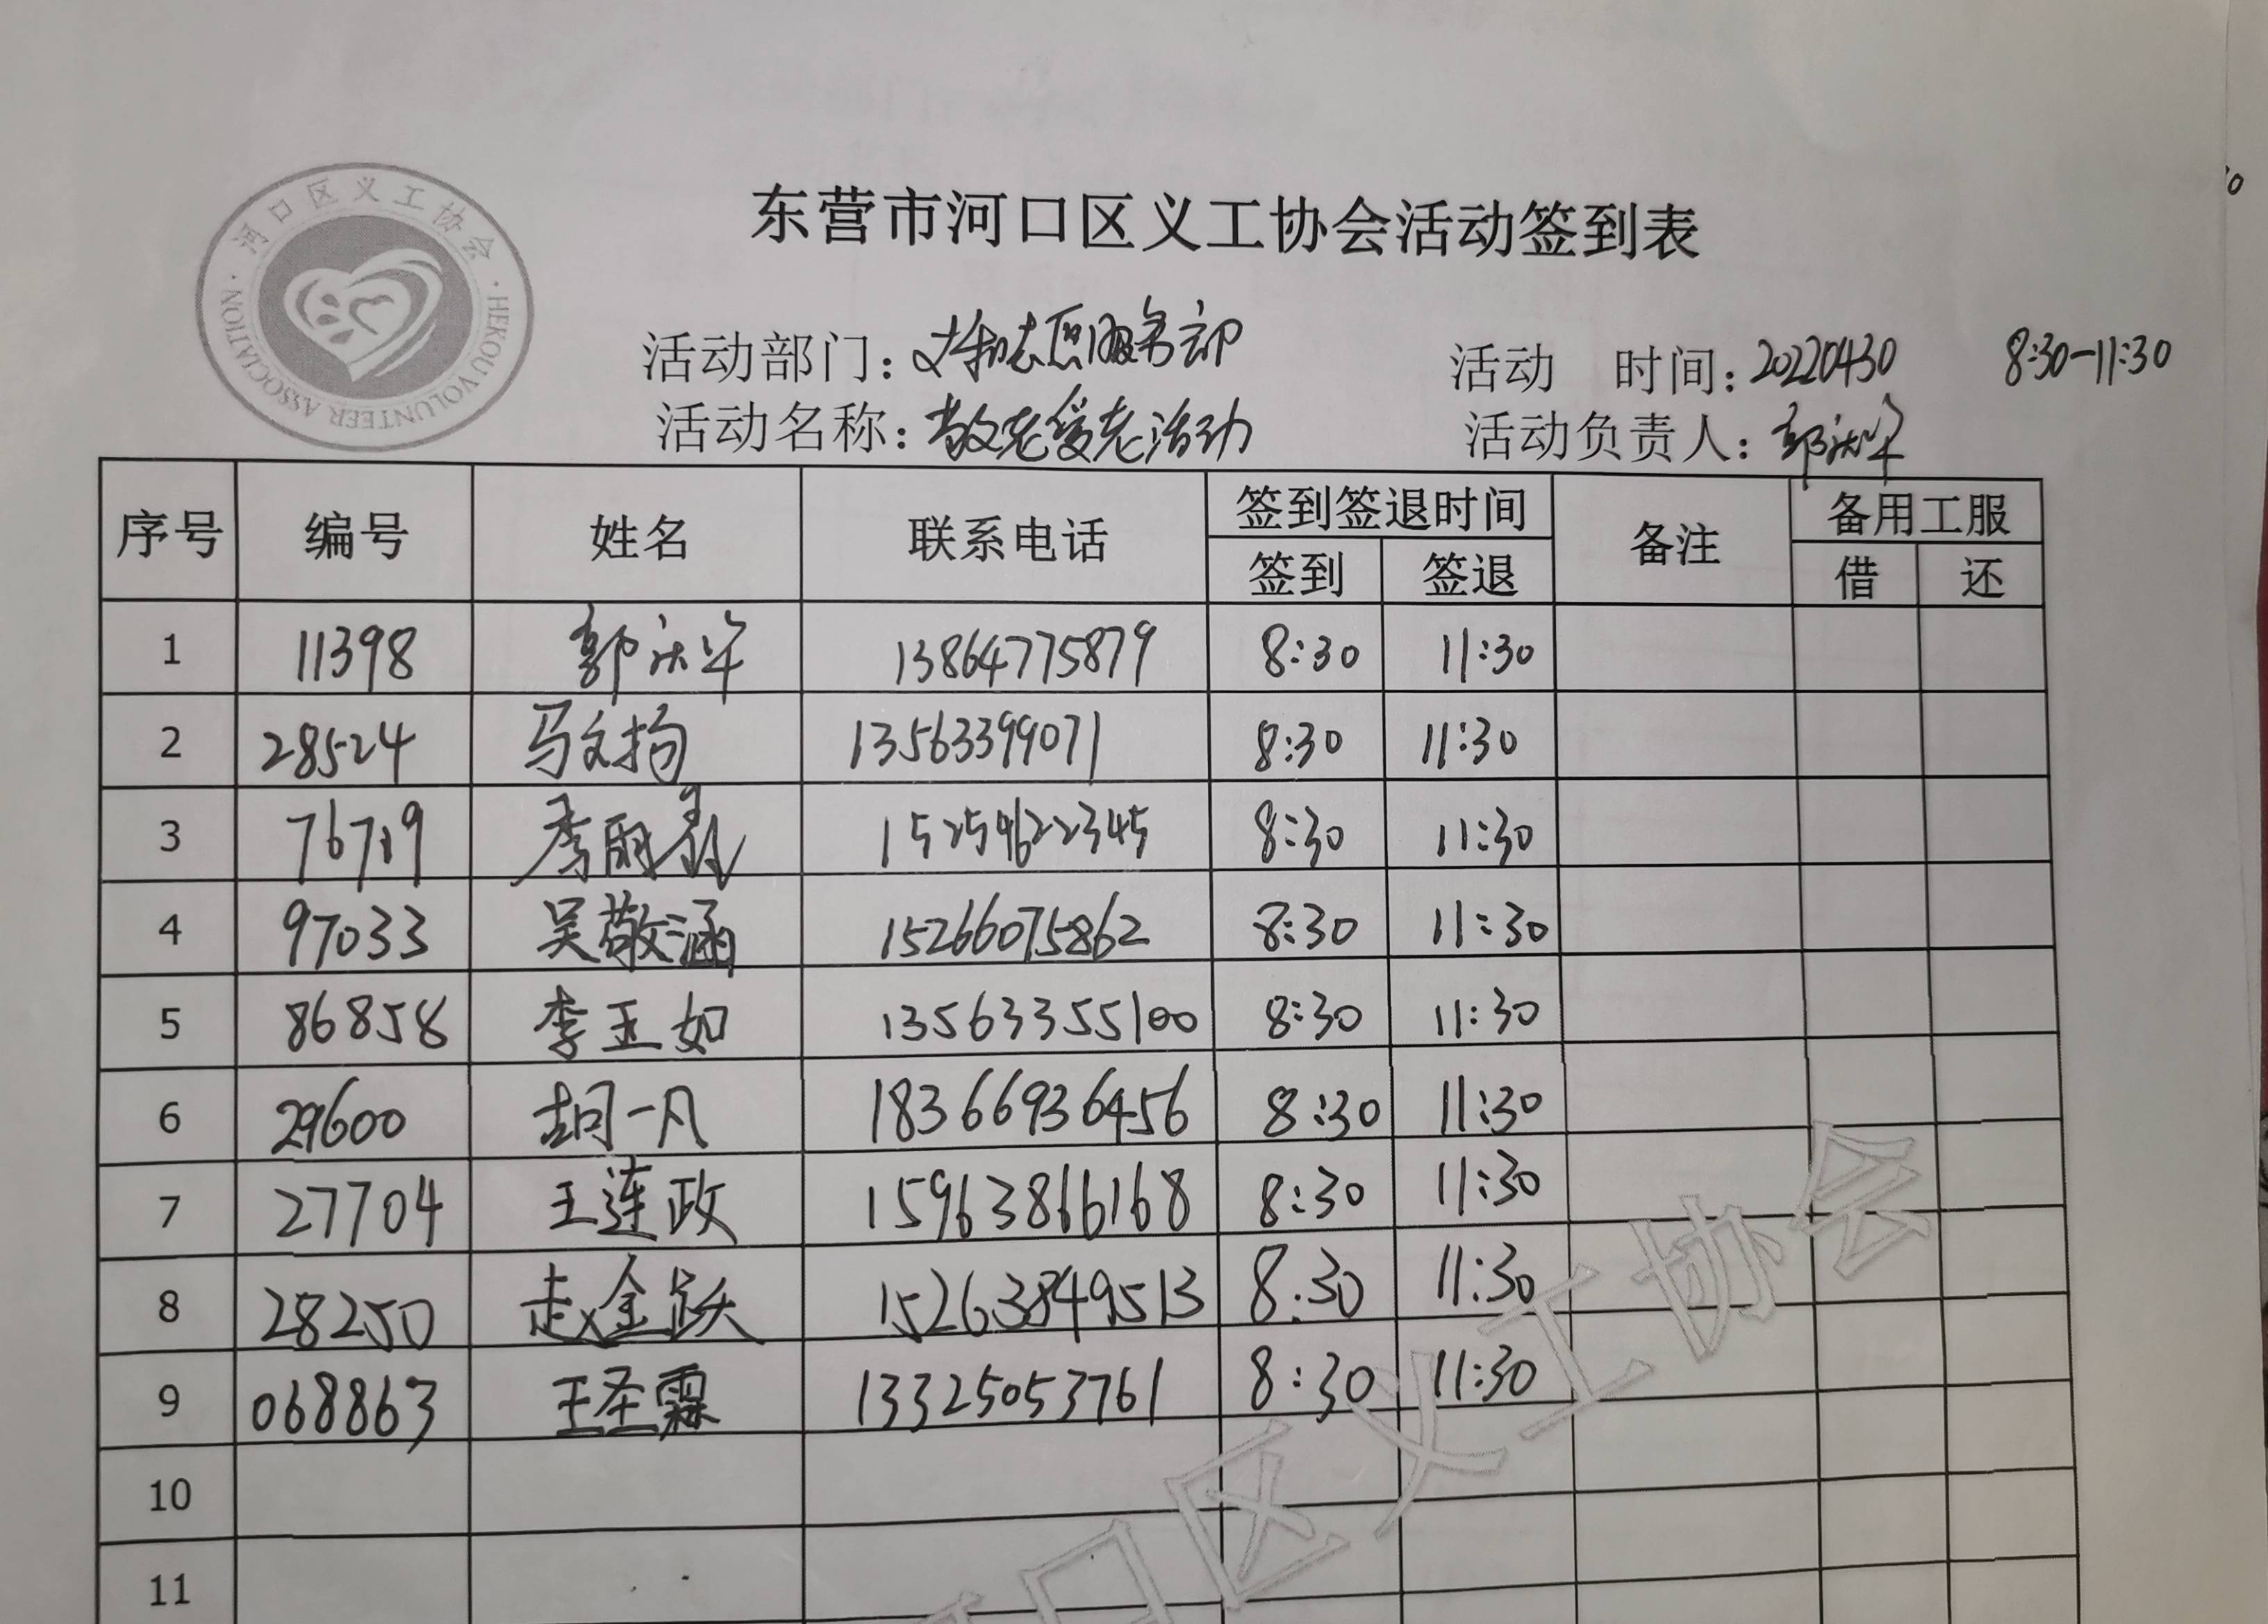 河口区义工协会
HEKOU VOLUNTEER ASSOCIATION
东营市河口区义工协会活动签到表
活动部门: 志愿服务部 活动 时间: 20220430 8:30-11:30
活动名称: 敬老爱老活动 活动负责人: 郭
序号 编号 姓名 联系电话 签到签退时间 备注 备用工服
签到 签退 借 还
1 11398 郭 13864775879 8:30 11:30
2 28524 马文 13563399071 8:30 11:30
3 76719 李丽 15254622345 8:30 11:30
4 97033 吴敬涵 15266075862 8:30 11:30
5 86858 李玉如 13563355100 8:30 11:30
6 29600 胡一凡 18366936456 8:30 11:30
7 27704 王连政 15963866168 8:30 11:30
8 28250 赵金跃 15263849513 8:30 11:30
9 068863 王圣霖 13325053761 8:30 11:30
10
11
口区义工协会